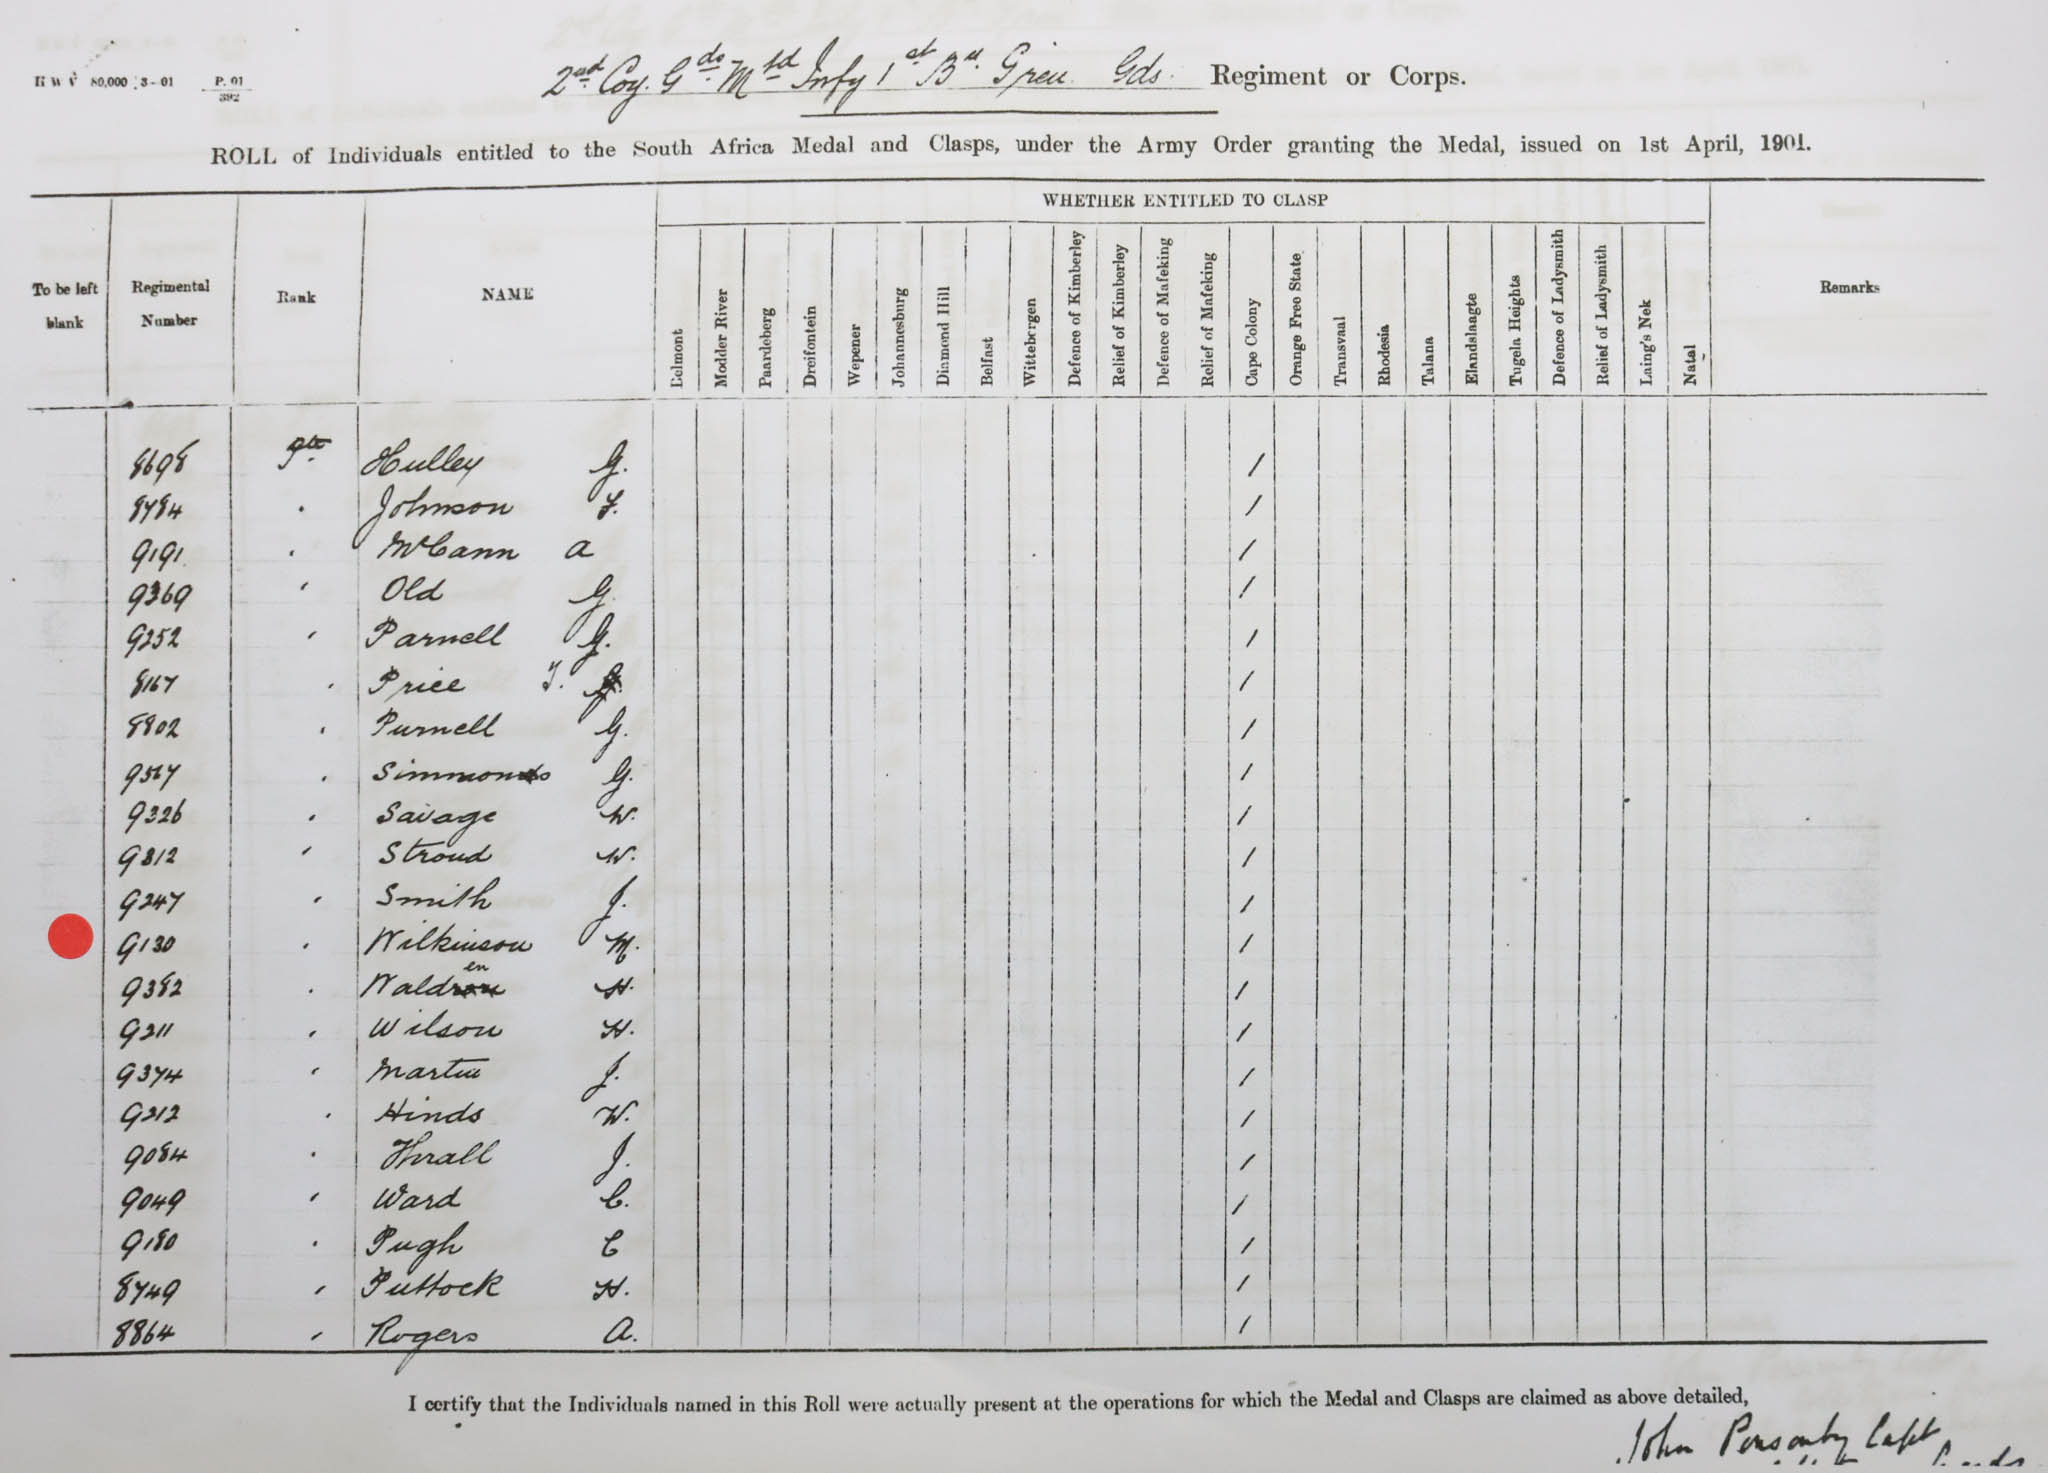 H W V 80,000 3-01 P. 01/392
2nd Coy. Gds Mtd Infy 1st Bn Gren Gds. Regiment or Corps.
ROLL of Individuals entitled to the South Africa Medal and Clasps, under the Army Order granting the Medal, issued on 1st April, 1901.
WHETHER ENTITLED TO CLASP
To be left blank Regimental Number Rank NAME Belmont Modder River Paardeberg Dreifontein Wepener Johannesburg Diamond Hill Belfast Wittebergen Defence of Kimberley Relief of Kimberley Defence of Mafeking Relief of Mafeking Cape Colony Orange Free State Transvaal Rhodesia Talana Elandslaagte Tugela Heights Defence of Ladysmith Relief of Ladysmith Laing's Nek Natal Remarks
8698 Pte Hulley G. /
8784 " Johnson F. /
9191 " McCann A /
9369 " Old G. /
9252 " Parnell G. /
8167 " Price /
8802 " Purnell G. /
9567 " Simmons G. /
9326 " Savage W. /
9312 " Stroud W. /
9247 " Smith J. /
9130 " Wilkinson M. /
9382 " Walden H. /
9211 " Wilson H. /
9374 " Martin J. /
9212 " Hinds W. /
9084 " Thrall J. /
9049 " Ward C. /
9180 " Pugh C /
8749 " Puttock H. /
8864 " Rogers A. /
I certify that the Individuals named in this Roll were actually present at the operations for which the Medal and Clasps are claimed as above detailed,
John Ponsonby Capt